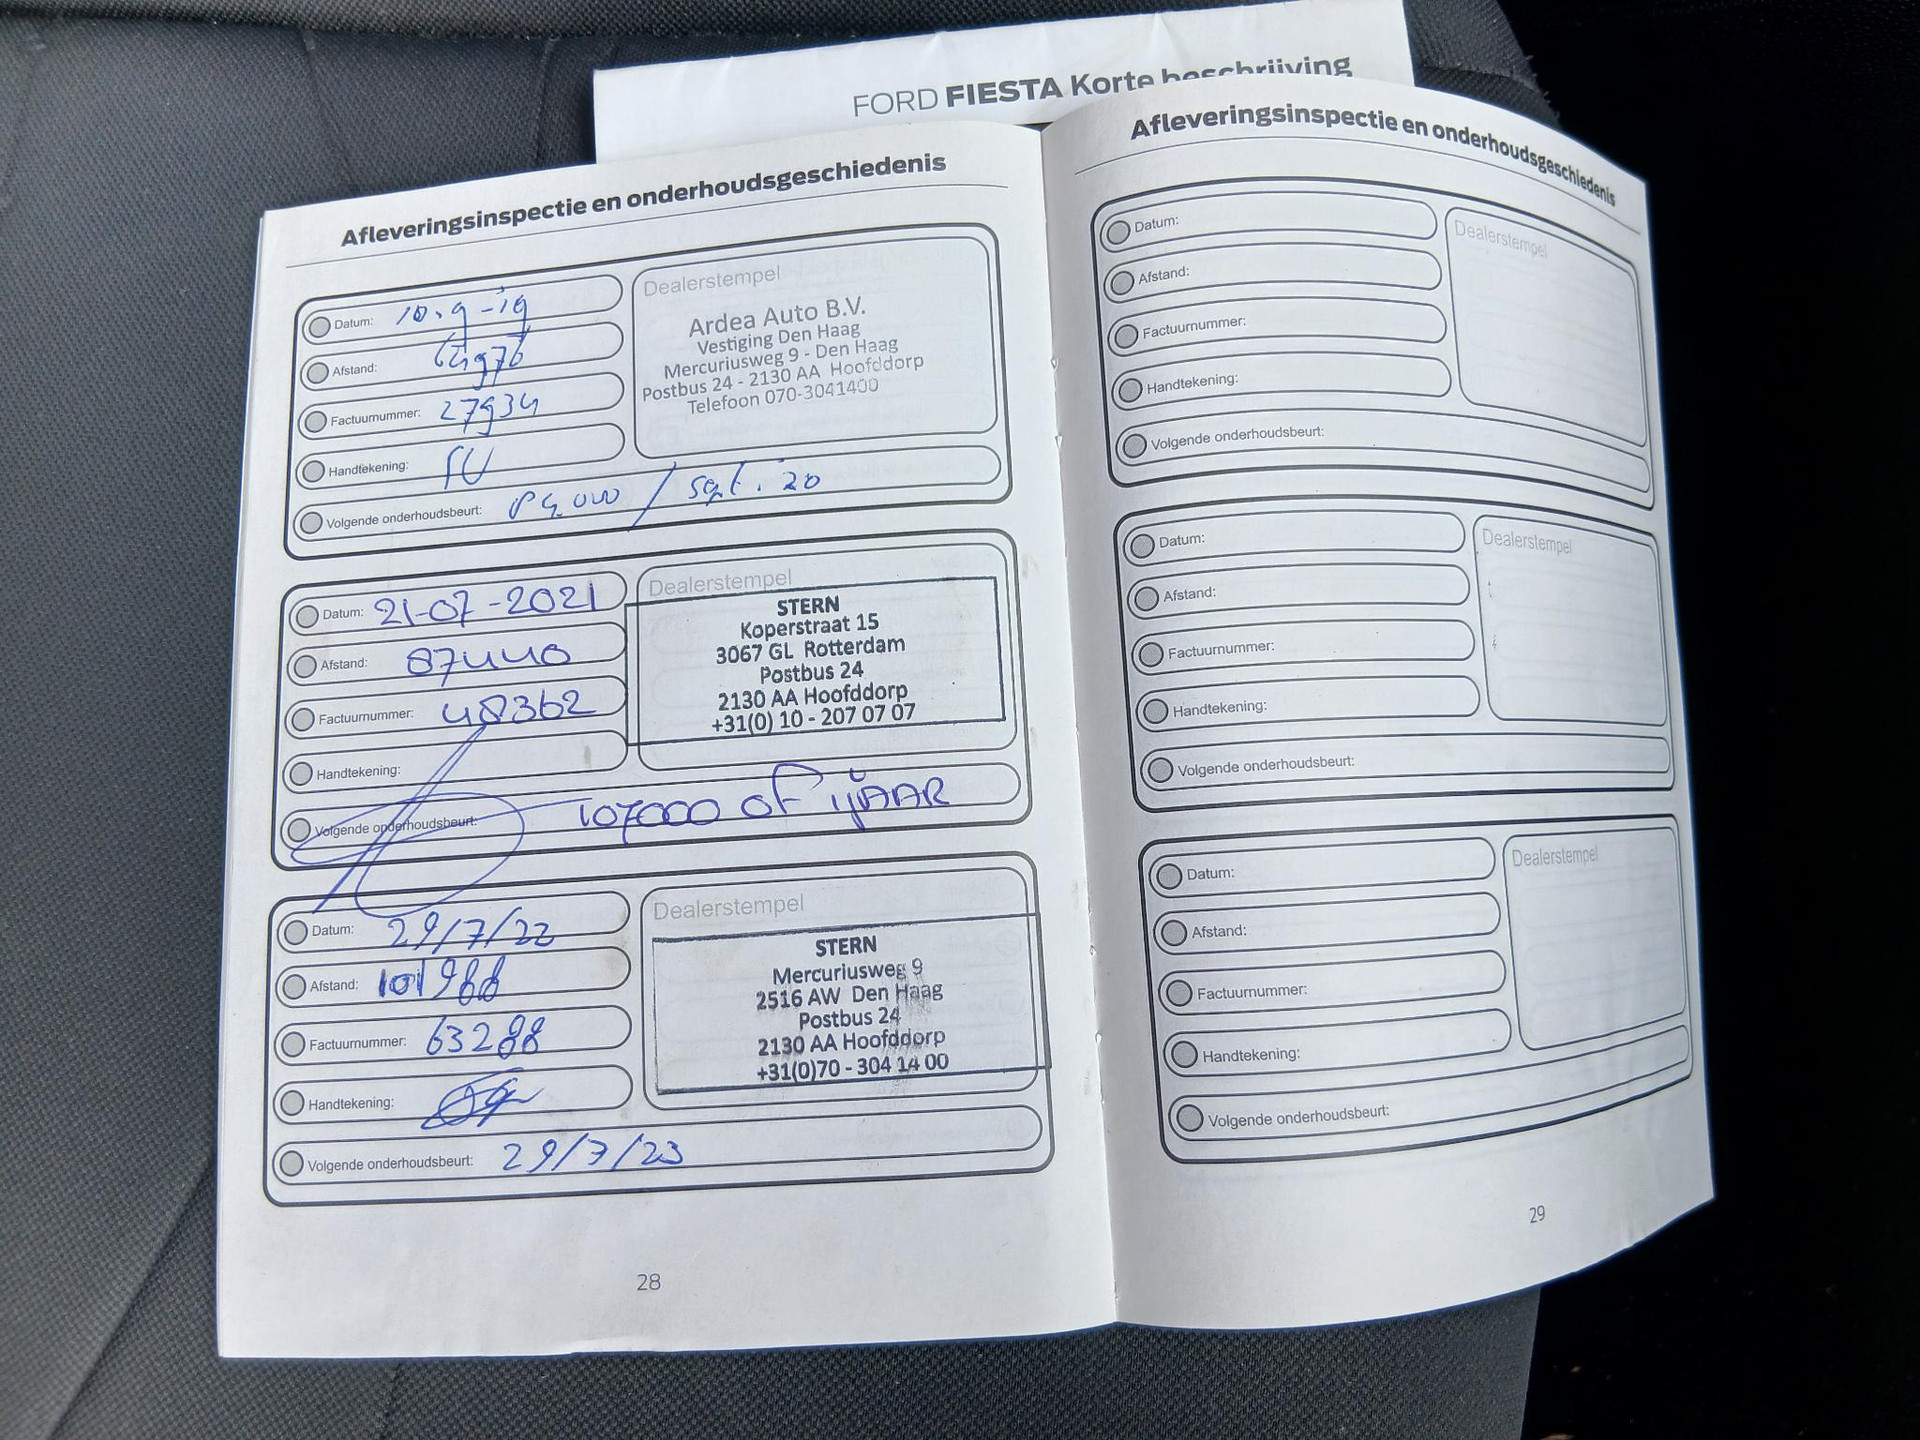 FORD FIESTA Korte beschrijving
Afleveringsinspectie en onderhoudsgeschiedenis
Datum: 10-9-19
Afstand:
Factuurnummer: 27934
Handtekening:
Volgende onderhoudsbeurt: / sept. 20
Dealerstempel
Ardea Auto B.V.
Vestiging Den Haag
Mercuriusweg 9 - Den Haag
Postbus 24 - 2130 AA Hoofddorp
Telefoon 070-3041400
Datum: 21-07-2021
Afstand: 87440
Factuurnummer: 48362
Handtekening:
Volgende onderhoudsbeurt: 107000 of 1 JAAR
Dealerstempel
STERN
Koperstraat 15
3067 GL Rotterdam
Postbus 24
2130 AA Hoofddorp
+31(0) 10 - 207 07 07
Datum: 29/7/22
Afstand: 101988
Factuurnummer: 63288
Handtekening:
Volgende onderhoudsbeurt: 29/7/23
Dealerstempel
STERN
Mercuriusweg 9
2516 AW Den Haag
Postbus 24
2130 AA Hoofddorp
+31(0)70 - 304 14 00
28
Afleveringsinspectie en onderhoudsgeschiedenis
Datum:
Afstand:
Factuurnummer:
Handtekening:
Volgende onderhoudsbeurt:
Dealerstempel
Datum:
Afstand:
Factuurnummer:
Handtekening:
Volgende onderhoudsbeurt:
Dealerstempel
Datum:
Afstand:
Factuurnummer:
Handtekening:
Volgende onderhoudsbeurt:
Dealerstempel
29